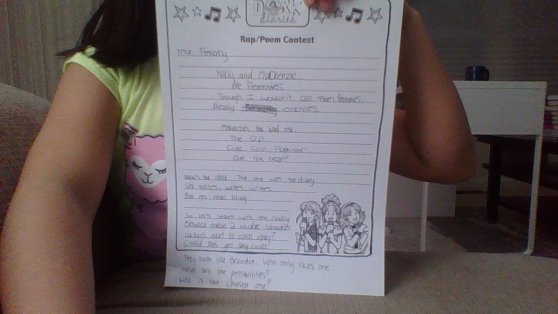 DORK
diaries
Rap/Poem Contest
Title: Frenemy
Nikki and MacKenzie,
Are Frenemies
Though I wouldn't call them femmes
Deadly enemies
MacKenzie's the bad one
The CCP
Cute, Cool, Popular
Get the beat?
Nikki's the dork. The one with the diary
She writes, writes, writes
But it's never tiring.
So let's start with this rivalry
Between these 2 middle schoolers
Lockers next to each other
Could this get any cooler?
They both like Brandon. Who only likes one.
What are the possibilities?
Who is the chosen one?